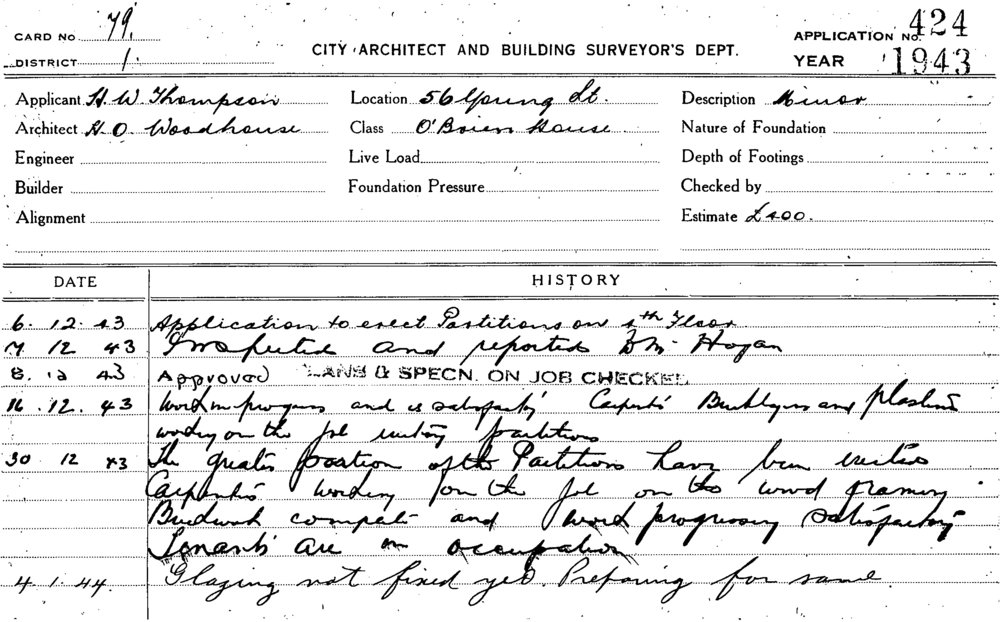 CARD No 79.
APPLICATION No. 424
DISTRICT 1.
CITY ARCHITECT AND BUILDING SURVEYOR'S DEPT.
YEAR 1943
Applicant H. W. Thompson
Location 56 Young St.
Description Minor
Architect H. O. Woodhouse
Class O'Brien House
Nature of Foundation
Engineer
Live Load
Depth of Footings
Builder
Foundation Pressure
Checked by
Alignment
Estimate £400.
DATE
HISTORY
6. 12. 43 Application to erect Partitions on 4th Floor
7 12 43 Inspected and reported Hogan
8. 12 43 Approved LANS & SPECN. ON JOB CHECKED
16. 12. 43 Work in progress and is satisfactory Carpenters Bricklayers and plasterers
working on the job erecting partitions
30 12 43 The greater portion of the Partitions have been erected
Carpenters working on the job on the wood framing
Brickwork complete and work progressing satisfactory
Tenants are in occupation
4. 1. 44. Glazing not fixed yet. Preparing for same